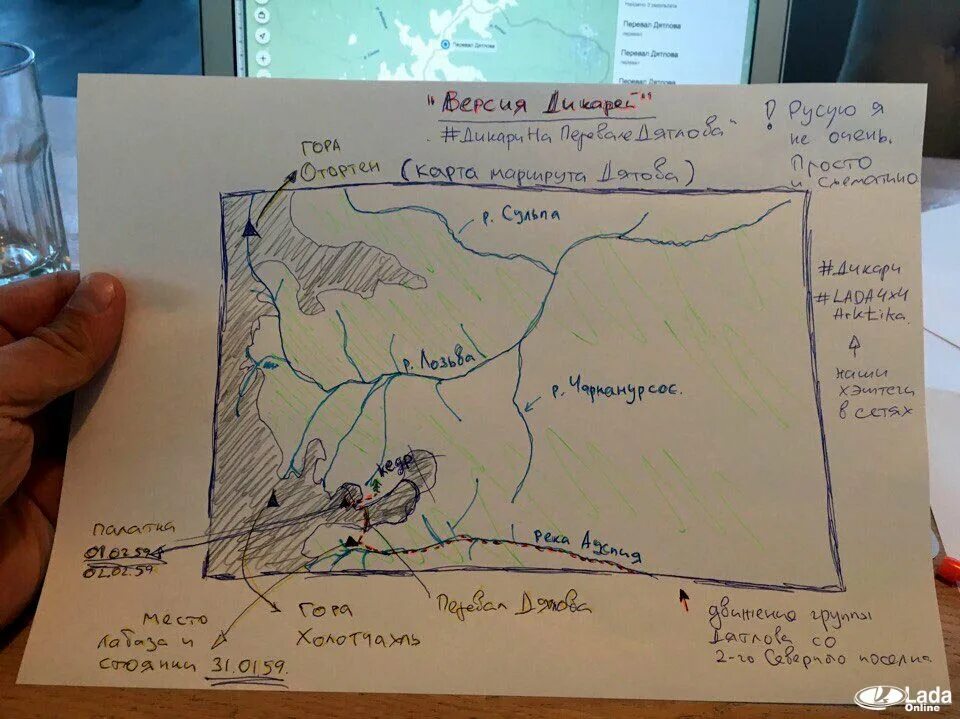 Найдено 3 результата
Перевал Дятлова
перевал
Перевал Дятлова
перевал
Перевал Дятлова
Перевал Дятлова
"Версия Дикарей"
#ДикариНаПеревалеДятлова"
(карта маршрута Дятова)
! Русую я
не очень.
Просто
и схематично
ГОРА
Отортен
р. Сульпа
р. Лозьва
р. Чарканурсос.
#Дикари
#LADA4x4
Arktika.
наши
хэштеги
в сетях
кедр
палатка
01.02.59
02.02.59
река Ауспия
Место
лабаза и
стоянки 31.01.59.
Гора
Холотчахль
Перевал Дятлова
движение группы
Дятлова со
2-го Северного поселка
Lada
Online